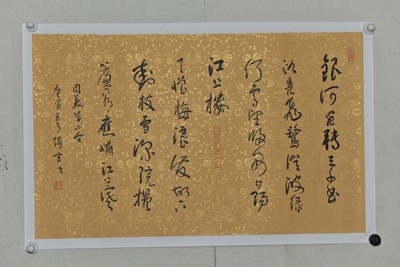 銀河宛轉三千曲
浴鳧飛鷺澄波綠
何處望歸舟夕陽
江上樓
天憎梅浪發故下
封枝雪深院捲
簾看應憐江上寒
周美成小令
庚寅